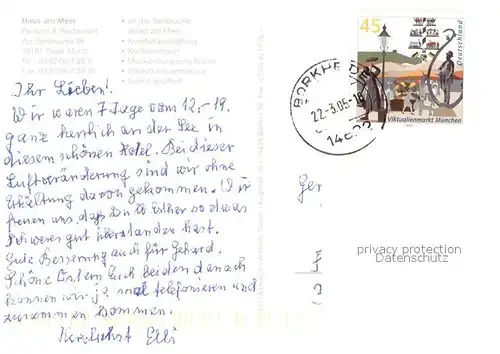 Haus am Meer
Pension & Restaurant
18181 Graal Müritz
an der Seebrücke
direkt am Meer
Komfortausstattung
Konferenzraum
Mecklenburgische Küche
täglich geöffnet
45
Deutschland
Viktualienmarkt München
BORKHEIDE
22.-3.05-16
Ihr Lieben!
Wir waren 7 Tage vom 12.-19.
ganz herrlich an der See in
diesem schönen Hotel. Bei dieser
Luftveränderung sind wir ohne
Erkältung davon gekommen. Wir
freuen uns, daß Du lb Esther so etwas
Schweres gut überstanden hast.
Gute Besserung auch für Gehard.
Schöne Ostern Euch beiden danach
können wir ja mal telefonieren und
zusammen kommen.
Herzlichst Elli
Ger
privacy protection
Datenschutz